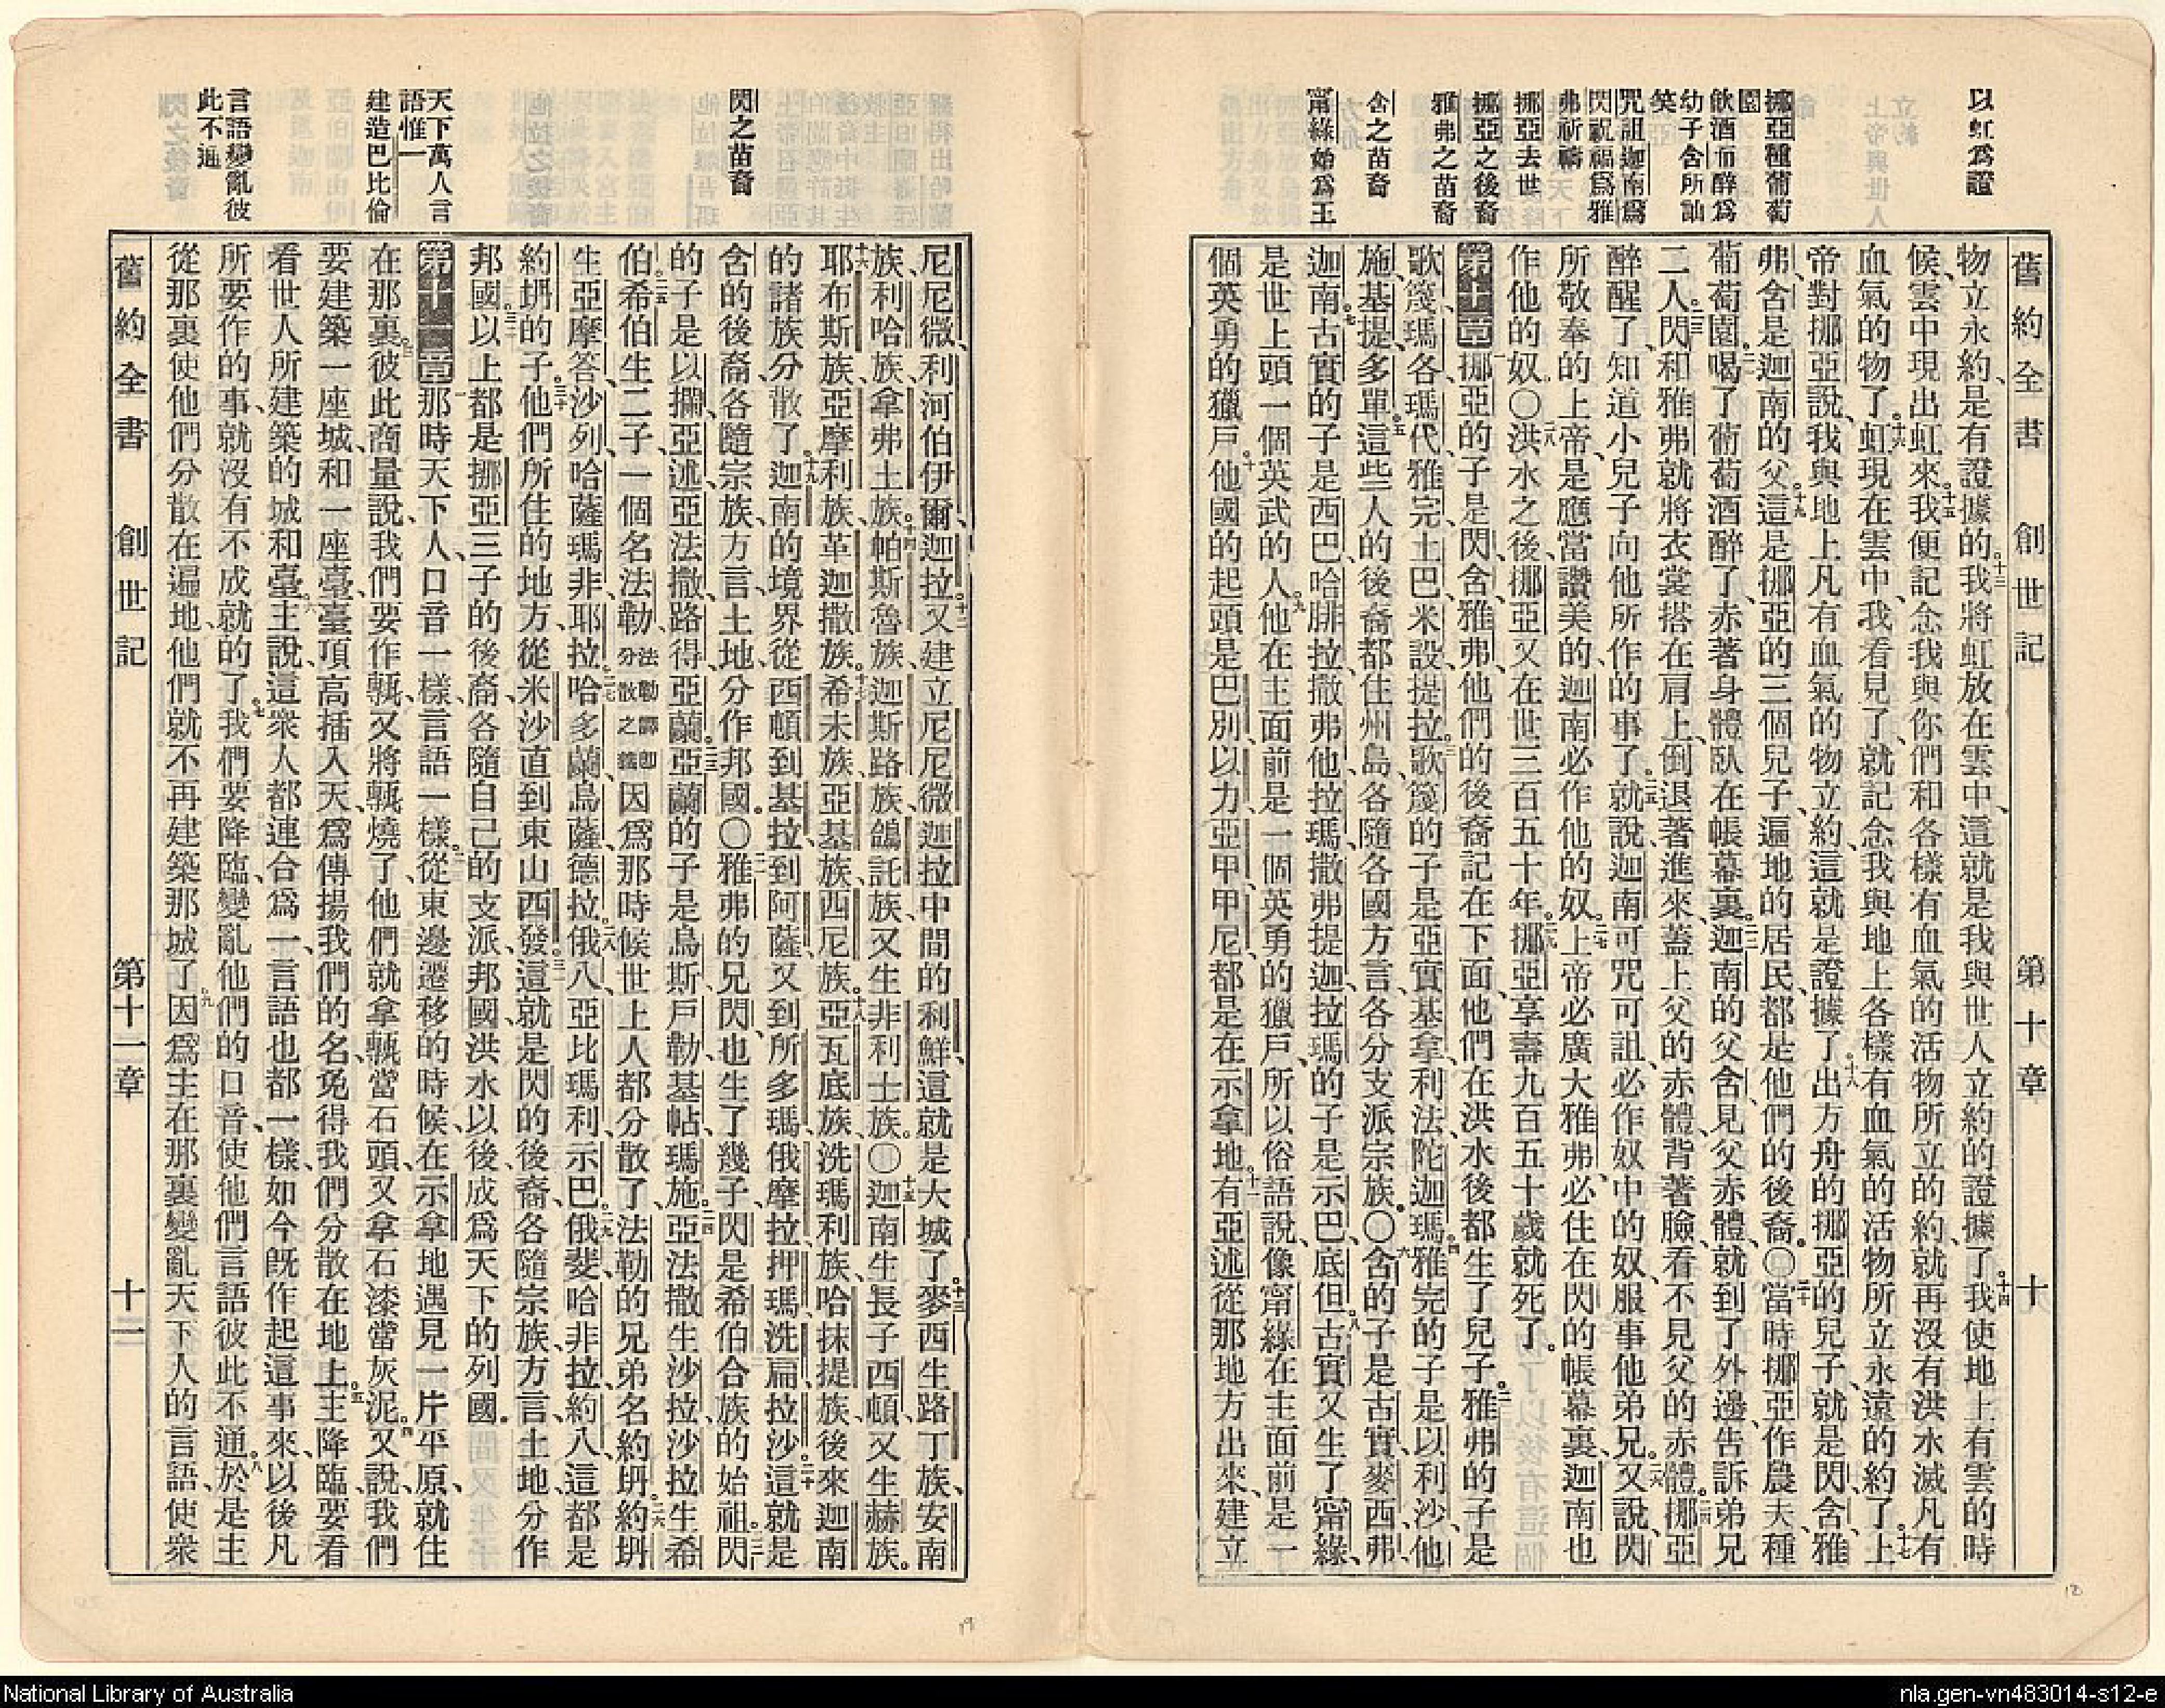 以虹為證
挪亞種葡萄
園
飲酒而醉為
幼子含所訕
笑
咒詛迦南為
閃祝福為雅
弗祈禱
挪亞去世
挪亞之後裔
雅弗之苗裔
含之苗裔
甯綠始為王
舊約全書 創世記 第十章 十
物立永約、是有證據的。十三我將虹放在雲中、這就是我與世人立約的證據了。十四我使地上有雲的時
候、雲中現出虹來。十五我便記念我與你們和各樣有血氣的活物所立的約、就再沒有洪水滅凡有
血氣的物了。十六虹現在雲中、我看見了、就記念我與地上各樣有血氣的活物所立永遠的約了。十七上
帝對挪亞說、我與地上凡有血氣的物立約、這就是證據了。十八出方舟的挪亞的兒子、就是閃、含、雅
弗、含是迦南的父。十九這是挪亞的三個兒子、遍地的居民、都是他們的後裔。〇二十當時挪亞作農夫、種
葡萄園。二一喝了葡萄酒醉了、赤著身體臥在帳幕裏。二二迦南的父含、見父赤體、就到了外邊、告訴弟兄
二人。二三閃和雅弗就將衣裳搭在肩上、倒退著進來、蓋上父的赤體、背著臉、看不見父的赤體。二四挪亞
醉醒了、知道小兒子向他所作的事了。二五就說、迦南可咒可詛、必作奴中的奴、服事他弟兄。二六又說、閃
所敬奉的上帝、是應當讚美的、迦南必作他的奴。二七上帝必廣大雅弗、必住在閃的帳幕裏、迦南也
作他的奴。〇二八洪水之後、挪亞又在世三百五十年。二九挪亞享壽九百五十歲就死了。
第十章一挪亞的子是閃、含、雅弗、他們的後裔記在下面、他們在洪水後都生了兒子。二雅弗的子是
歌篾、瑪各、瑪代、雅完、土巴、米設、提拉。三歌篾的子是亞實基拿、利法、陀迦瑪。四雅完的子是以利沙、他
施、基提、多單。五這些人的後裔都住州島、各隨各國方言、各分支派宗族。〇六含的子是古實、麥西、弗、
迦南。七古實的子是西巴、哈腓拉、撒弗他、拉瑪、撒弗提迦、拉瑪的子是示巴、底但。八古實又生了甯綠、
是世上頭一個英武的人。九他在主面前是一個英勇的獵戶、所以俗語說、像甯綠在主面前是一
個英勇的獵戶。十他國的起頭是巴別、以力、亞甲、甲尼、都是在示拿地。十一有亞述從那地方出來、建立
閃之苗裔
天下萬人言
語惟一
建造巴比倫
言語變亂彼
此不通
尼尼微、利河伯伊爾、迦拉。十二又建立尼尼微迦拉中間的利鮮、這就是大城了。十三麥西生路丁族、安南
族、利哈族、拿弗土族。十四帕斯魯族、迦斯路族、鴿託族、又生非利士族。〇十五迦南生長子西頓、又生赫族。
十六耶布斯族、亞摩利族、革迦撒族。十七希未族、亞基族、西尼族。十八亞瓦底族、洗瑪利族、哈抹提族、後來迦南
的諸族分散了。十九迦南的境界、從西頓到基拉、到阿薩、又到所多瑪、俄摩拉、押瑪、洗扁、拉沙。二十這就是
含的後裔、各隨宗族、方言、土地、分作邦國。〇二一雅弗的兄閃、也生了幾子、閃是希伯合族的始祖。二二閃
的子是以攔、亞述、亞法撒、路得、亞蘭。二三亞蘭的子是烏斯、戶勒、基帖、瑪施。二四亞法撒生沙拉、沙拉生希
伯。二五希伯生二子、一個名法勒、法勒譯即分散之義因為那時候世上人都分散了、法勒的兄弟名約坍。二六約坍
生亞摩答、沙列、哈薩瑪非、耶拉。二七哈多蘭、烏薩、德拉。二八俄八、亞比瑪利、示巴。二九俄斐、哈非拉、約八、這都是
約坍的子。三十他們所住的地方、從米沙直到東山西發。三一這就是閃的後裔、各隨宗族、方言、土地、分作
邦國。三二以上都是挪亞三子的後裔、各隨自己的支派、邦國、洪水以後、成為天下的列國。
第十一章一那時天下人、口音一樣、言語一樣。二從東邊遷移的時候、在示拿地遇見一片平原、就住
在那裏。三彼此商量說、我們要作甎、又將甎燒了、他們就拿甎當石頭、又拿石漆當灰泥。四又說、我們
要建築一座城、和一座臺、臺頂高插入天、為傳揚我們的名、免得我們分散在地上。五主降臨、要看
看世人所建築的城和臺。六主說、這衆人都連合為一、言語也都一樣、如今既作起這事來、以後凡
所要作的事、就沒有不成就的了。七我們要降臨、變亂他們的口音、使他們言語彼此不通。八於是主
從那裏使他們分散在遍地、他們就不再建築那城了。九因為主在那裏變亂天下人的言語、使衆
舊約全書 創世記 第十一章 十一
19
18
National Library of Australia
nla.gen-vn483014-s12-e